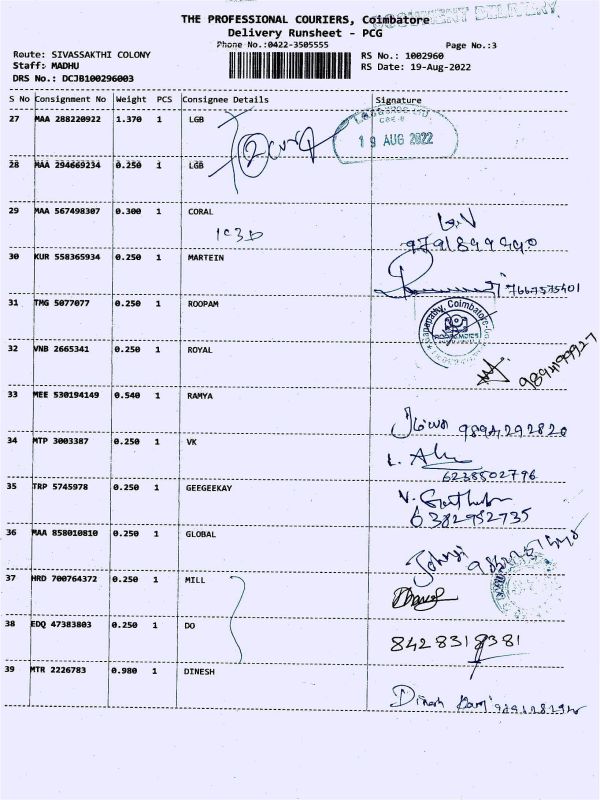 DOCUMENT DELIVERY
THE PROFESSIONAL COURIERS, Coimbatore
Delivery Runsheet - PCG
Phone No.:0422-3505555
Page No.:3
Route: SIVASSAKTHI COLONY
RS No.: 1002960
Staff: MADHU
RS Date: 19-Aug-2022
DRS No.: DCJB100296003
S No Consignment No Weight PCS Consignee Details Signature
27 MAA 288220922 1.370 1 LGB
19 AUG 2022
28 MAA 294669234 0.250 1 LGB
29 MAA 567498307 0.300 1 CORAL
30 KUR 558365934 0.250 1 MARTEIN
7667575401
31 TMG 5077077 0.250 1 ROOPAM
Ganapathy, Coimbatore
32 VNB 2665341 0.250 1 ROYAL
9894199927
33 MEE 530194149 0.540 1 RAMYA
9894292820
34 MTP 3003387 0.250 1 VK
6238502796
35 TRP 5745978 0.250 1 GEEGEEKAY
6382952735
36 MAA 858010810 0.250 1 GLOBAL
37 HRD 700764372 0.250 1 MILL
38 EDQ 47383803 0.250 1 DO
8428318381
39 MTR 2226783 0.980 1 DINESH
Dinesh